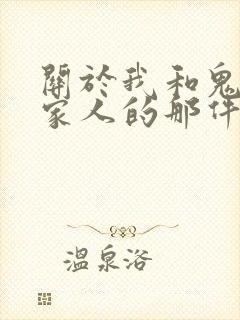 關於我和鬼
家人的那件
溫泉洛